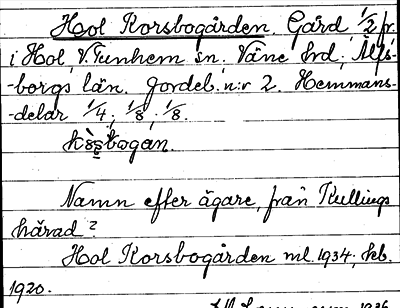 Hol Korsbogården. Gård, 1/2 fr.
i Hol, V. Tunhem sn, Väne hd, Älfs-
-borgs län. Jordeb. n:r 2. Hemmans-
-delar 1/4; 1/8; 1/8.
Namn efter ägare, från Kullings
härad?
Hol Korsbogården ml. 1934; kb.
1920.